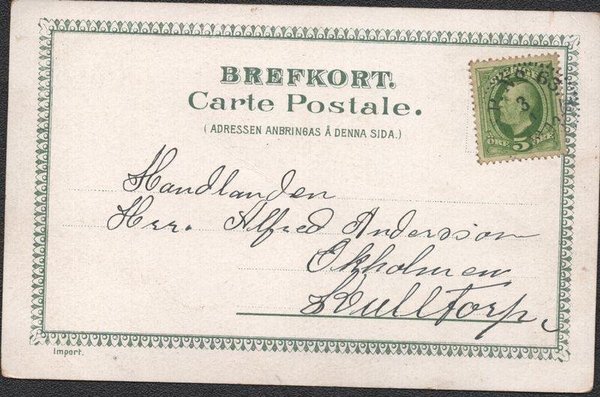 BREFKORT.
Carte Postale.
(ADRESSEN ANBRINGAS Å DENNA SIDA.)
PKXP 63
3
5
ÖRE ÖRE
Handlanden
Herr Alfred Andersson
Ekholmen
Kulltorp.
Import.